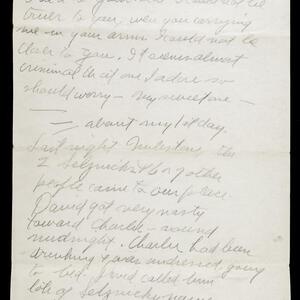 truer to you, were you carrying
me in your arms I could not be
closer to you. It seems almost
criminal that one I adore so
should worry - my sweet one -
= about my 1st day.
Last night Milestone, the
2 Selznicks & 2 other
people came to our place.
David got very nasty
toward Charlie - around
midnight. Charlie had been
drinking & was undressed, going
to bed. David called him
lots of Selznicky names